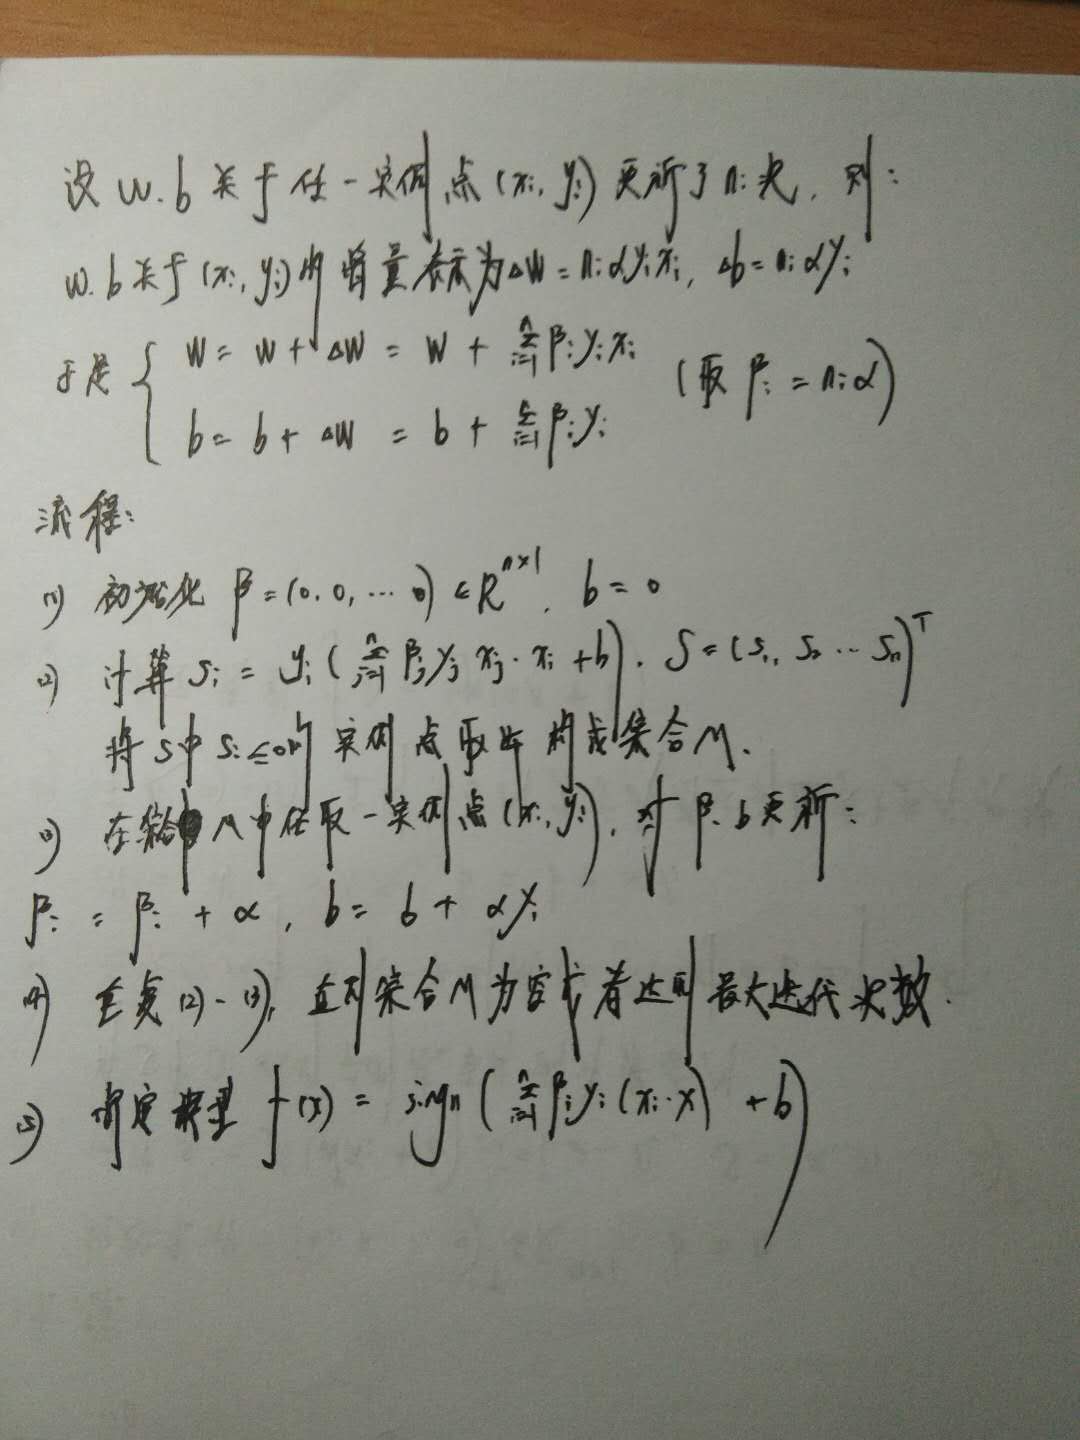 设 w.b 关于任一实例点(xi, yi)更新了ni次, 则:
w.b关于(xi, yi)的增量表示为ΔW = niαyixi, Δb = niαyi
于是 { W = W + ΔW = W + Σ(i=1→n) βiyixi
b = b + ΔW = b + Σ(i=1→n) βiyi (取 βi = niα)
流程:
(1) 初始化 β = (0, 0, … 0) ∈ R^(n×1), b = 0
(2) 计算 Si = yi(Σ(j=1→n) βjyj xj·xi + b). S = (S1, S2 … Sn)^T
将S中Si≤0的实例点取出构成集合M.
(3) 在集合M中任取一实例点(xi, yi), 对β.b更新:
βi = βi + α, b = b + αyi
(4) 重复(2)-(3), 直到集合M为空或者达到最大迭代次数.
(5) 确定模型 f(x) = sign(Σ(i=1→n) βiyi(xi·x) + b)